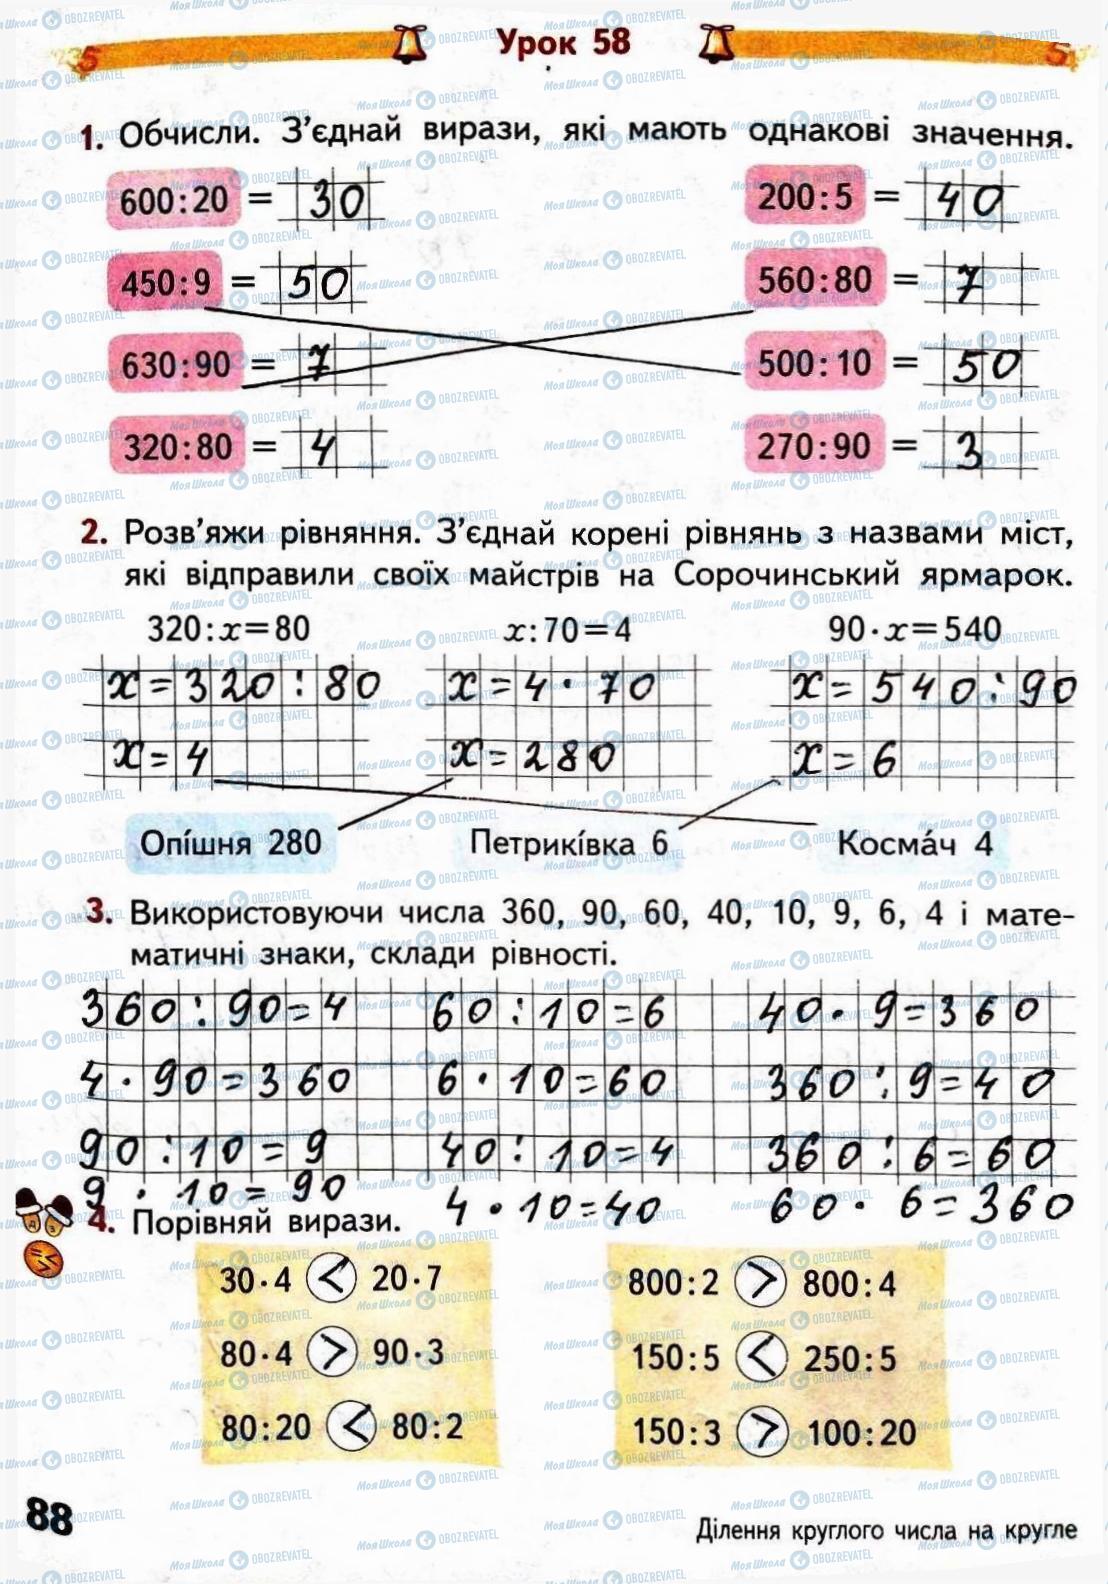 Урок 58
1. Обчисли. З'єднай вирази, які мають однакові значення.
600:20 = 30 200:5 = 40
450:9 = 50 560:80 = 7
630:90 = 7 500:10 = 50
320:80 = 4 270:90 = 3
2. Розв'яжи рівняння. З'єднай корені рівнянь з назвами міст,
які відправили своїх майстрів на Сорочинський ярмарок.
320:x=80 x:70=4 90·x=540
x=320:80 x=4·70 x=540:90
x=4 x=280 x=6
Опíшня 280 Петрикíвка 6 Космáч 4
3. Використовуючи числа 360, 90, 60, 40, 10, 9, 6, 4 і мате-
матичні знаки, склади рівності.
360:90=4 60:10=6 40·9=360
4·90=360 6·10=60 360:9=40
90:10=9 40:10=4 360:6=60
9·10=90 4·10=40 60·6=360
4. Порівняй вирази.
30·4 < 20·7 800:2 > 800:4
80·4 > 90·3 150:5 < 250:5
80:20 < 80:2 150:3 > 100:20
88
Ділення круглого числа на кругле
МояШкола OBOZREVATEL